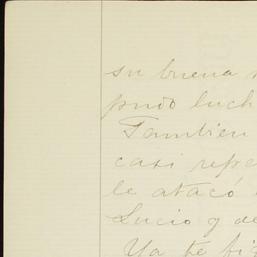 su buena
pudo luch
Tambien
casi repe
le atacó
Lucio y de
Ya te fig